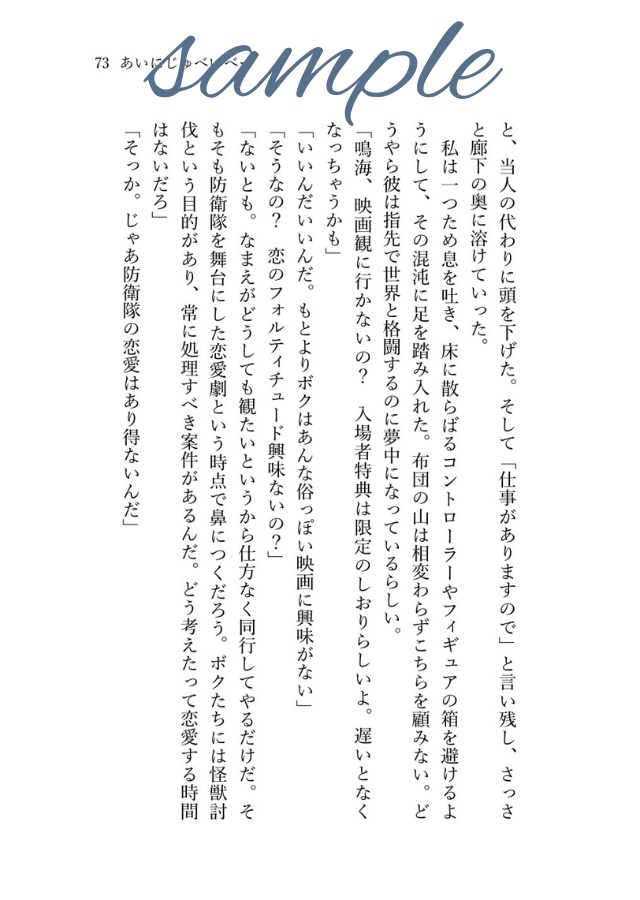 sample
73 あいにじゅべいべー
と、当人の代わりに頭を下げた。そして「仕事がありますので」と言い残し、さっさ
と廊下の奥に溶けていった。
私は一つため息を吐き、床に散らばるコントローラーやフィギュアの箱を避けるよ
うにして、その混沌に足を踏み入れた。布団の山は相変わらずこちらを顧みない。ど
うやら彼は指先で世界と格闘するのに夢中になっているらしい。
「鳴海、映画観に行かないの？　入場者特典は限定のしおりらしいよ。遅いとなく
なっちゃうかも」
「いいんだいいんだ。もとよりボクはあんな俗っぽい映画に興味がない」
「そうなの？　恋のフォルティチュード興味ないの？」
「ないとも。なまえがどうしても観たいというから仕方なく同行してやるだけだ。そ
もそも防衛隊を舞台にした恋愛劇という時点で鼻につくだろう。ボクたちには怪獣討
伐という目的があり、常に処理すべき案件があるんだ。どう考えたって恋愛する時間
はないだろ」
「そっか。じゃあ防衛隊の恋愛はあり得ないんだ」